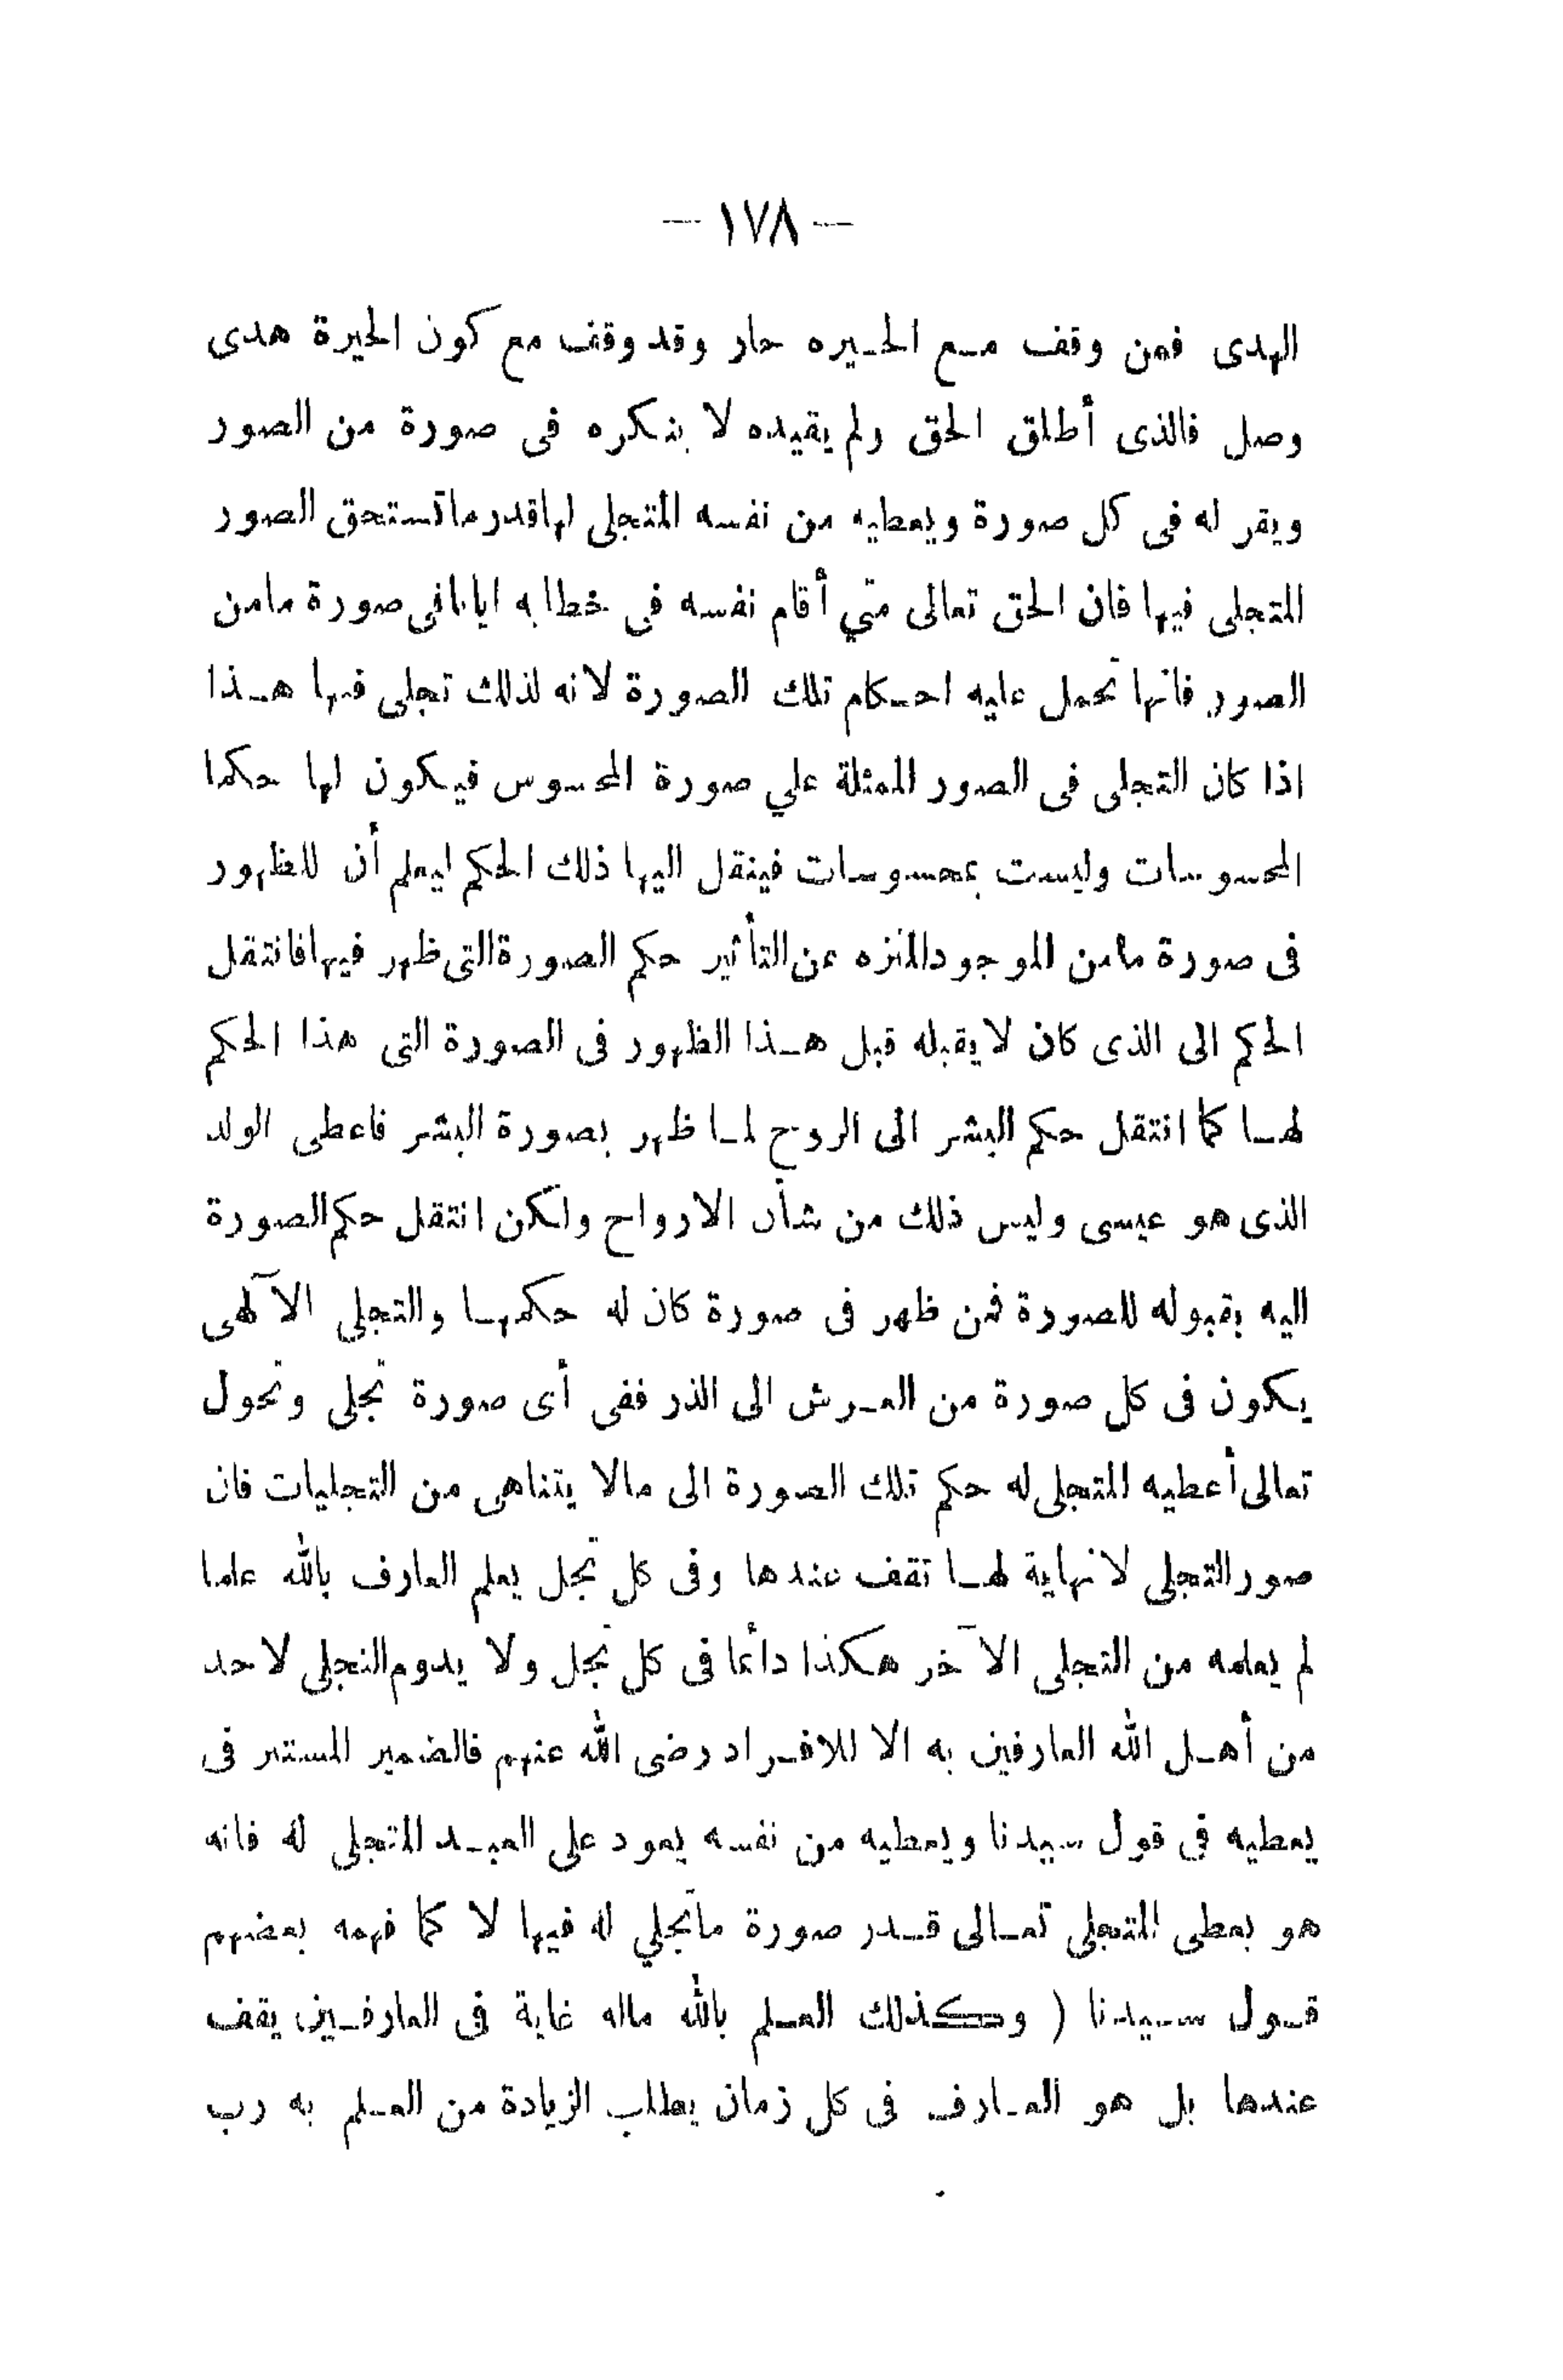 — ١٧٨ —
الهدى فمن وقف مع الحيره حار وقد وقف مع كون الحيرة هدى
وصل فالذى أطلق الحق ولم يقيده لا ينكره فى صورة من الصور
ويقر له فى كل صورة ويعطيه من نفسه المتجلى لها قدر ما تستحق الصور
المتجلى فيها فان الحق تعالى متي أقام نفسه فى خطابه ايانا فى صورة ما من
الصور فانها تحمل عليه احكام تلك الصورة لانه لذلك تجلى فيها هذا
اذا كان التجلى فى الصور الممثلة علي صورة المحسوس فيكون لها حكما
المحسوسات وليست بمحسوسات فينقل اليها ذلك الحكم ليعلم أن للظهور
فى صورة ما من الموجود المنزه عن التأثير حكم الصورة التى ظهر فيها فانتقل
الحكم الى الذى كان لا يقبله قبل هذا الظهور فى الصورة التى هذا الحكم
لها كما انتقل حكم البشر الى الروح لما ظهر بصورة البشر فاعطى الولد
الذى هو عيسى وليس ذلك من شأن الارواح ولكن انتقل حكم الصورة
اليه بقبوله للصورة فمن ظهر فى صورة كان له حكمها والتجلى الآلهى
يكون فى كل صورة من العرش الى الذر ففى أى صورة تجلى وتحول
تعالى أعطيه المتجلى له حكم تلك الصورة الى مالا يتناهى من التجليات فان
صور التجلى لا نهاية لها تقف عندها وفى كل تجل يعلم العارف بالله علما
لم يعلمه من التجلى الآخر هكذا دائما فى كل تجل ولا يدوم التجلى لاحد
من أهل الله العارفين به الا للافراد رضى الله عنهم فالضمير المستتر فى
يعطيه فى قول سيدنا ويعطيه من نفسه يعود على العبد المتجلى له فانه
هو يعطى المتجلى تعالى قدر صورة ما تجلي له فيها لا كما فهمه بعضهم
قول سيدنا ( وكذلك العلم بالله ماله غاية فى العارفين يقف
عندها بل هو العارف فى كل زمان يطلب الزيادة من العلم به رب